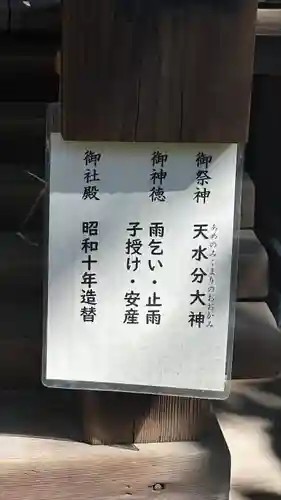 御祭神 天水分大神
あめのみくまりのおおかみ
御神徳 雨乞い・止雨
子授け・安産
御社殿 昭和十年造替